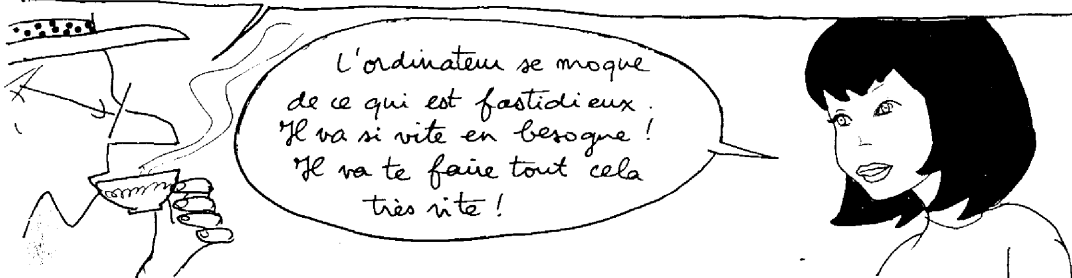 L'ordinateur se moque
de ce qui est fastidieux.
Il va si vite en besogne !
Il va te faire tout cela
très vite !